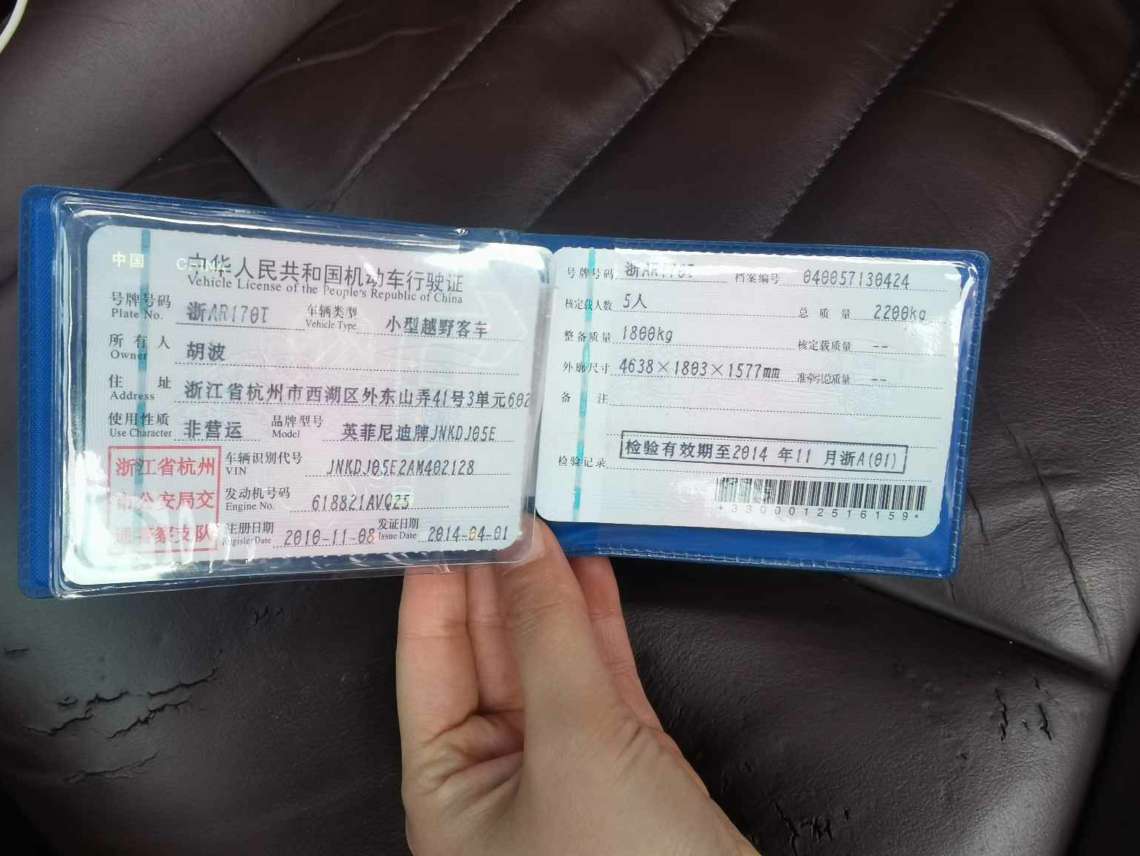 中国 CHINA
中华人民共和国机动车行驶证
Vehicle License of the People's Republic of China
号牌号码 浙AR170T 车辆类型 小型越野客车
Plate No. Vehicle Type
所有人 胡波
Owner
住址 浙江省杭州市西湖区外东山弄41号3单元602
Address
使用性质 非营运 品牌型号 英菲尼迪牌JNKDJ05E
Use Character Model
车辆识别代号 JNKDJ05E2AM402128
VIN
发动机号码 618821AVQ25
Engine No.
注册日期 2010-11-08 发证日期 2014-04-01
Register Date Issue Date
浙江省杭州
市公安局交
通警察支队
号牌号码 浙AR170T 档案编号 040057130424
核定载人数 5人 总质量 2200kg
整备质量 1800kg 核定载质量 --
外廓尺寸 4638×1803×1577mm 准牵引总质量 --
备注
检验有效期至2014 年11 月浙A(01)
检验记录
*3300012516159*